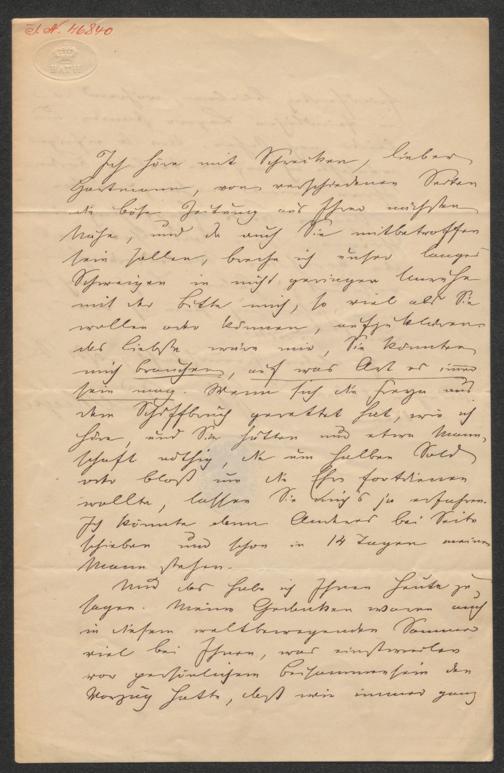 J. N. 46840
BATH
Ich höre mit Schrecken, lieber
Hartmann, von verschiedenen Seiten
die böse Zeitung aus Ihrer nächsten
Nähe, und da auch Sie mitbetroffen
sein sollen, breche ich unser langes
Schweigen in nicht geringer Unruhe
mit der Bitte mich, so viel als Sie
wollen oder können, aufzuklären.
das Liebste wäre mir, Sie könnten
mich brauchen, auf was Art es immer
sein mag. Wenn sich die Freya aus
dem Schiffbruch gerettet hat, wie ich
höre, und Sie hätten noch etwa Mann-
schaft nöthig, die um halben Sold
oder bloß um die Ehre fortdienen
wollte, lassen Sie mich's ja erfahren.
Ich könnte dann Anderes bei Seite
schieben und schon in 14 Tagen meinen
Mann stehen.
Nur das habe ich Ihnen heute zu
sagen. Meine Gedanken waren auch
in diesem weltbewegenden Sommer
viel bei Ihnen, was einstweilen
vor persönlichem Beisammensein den
Vorzug hatte, daß wir immer ganz